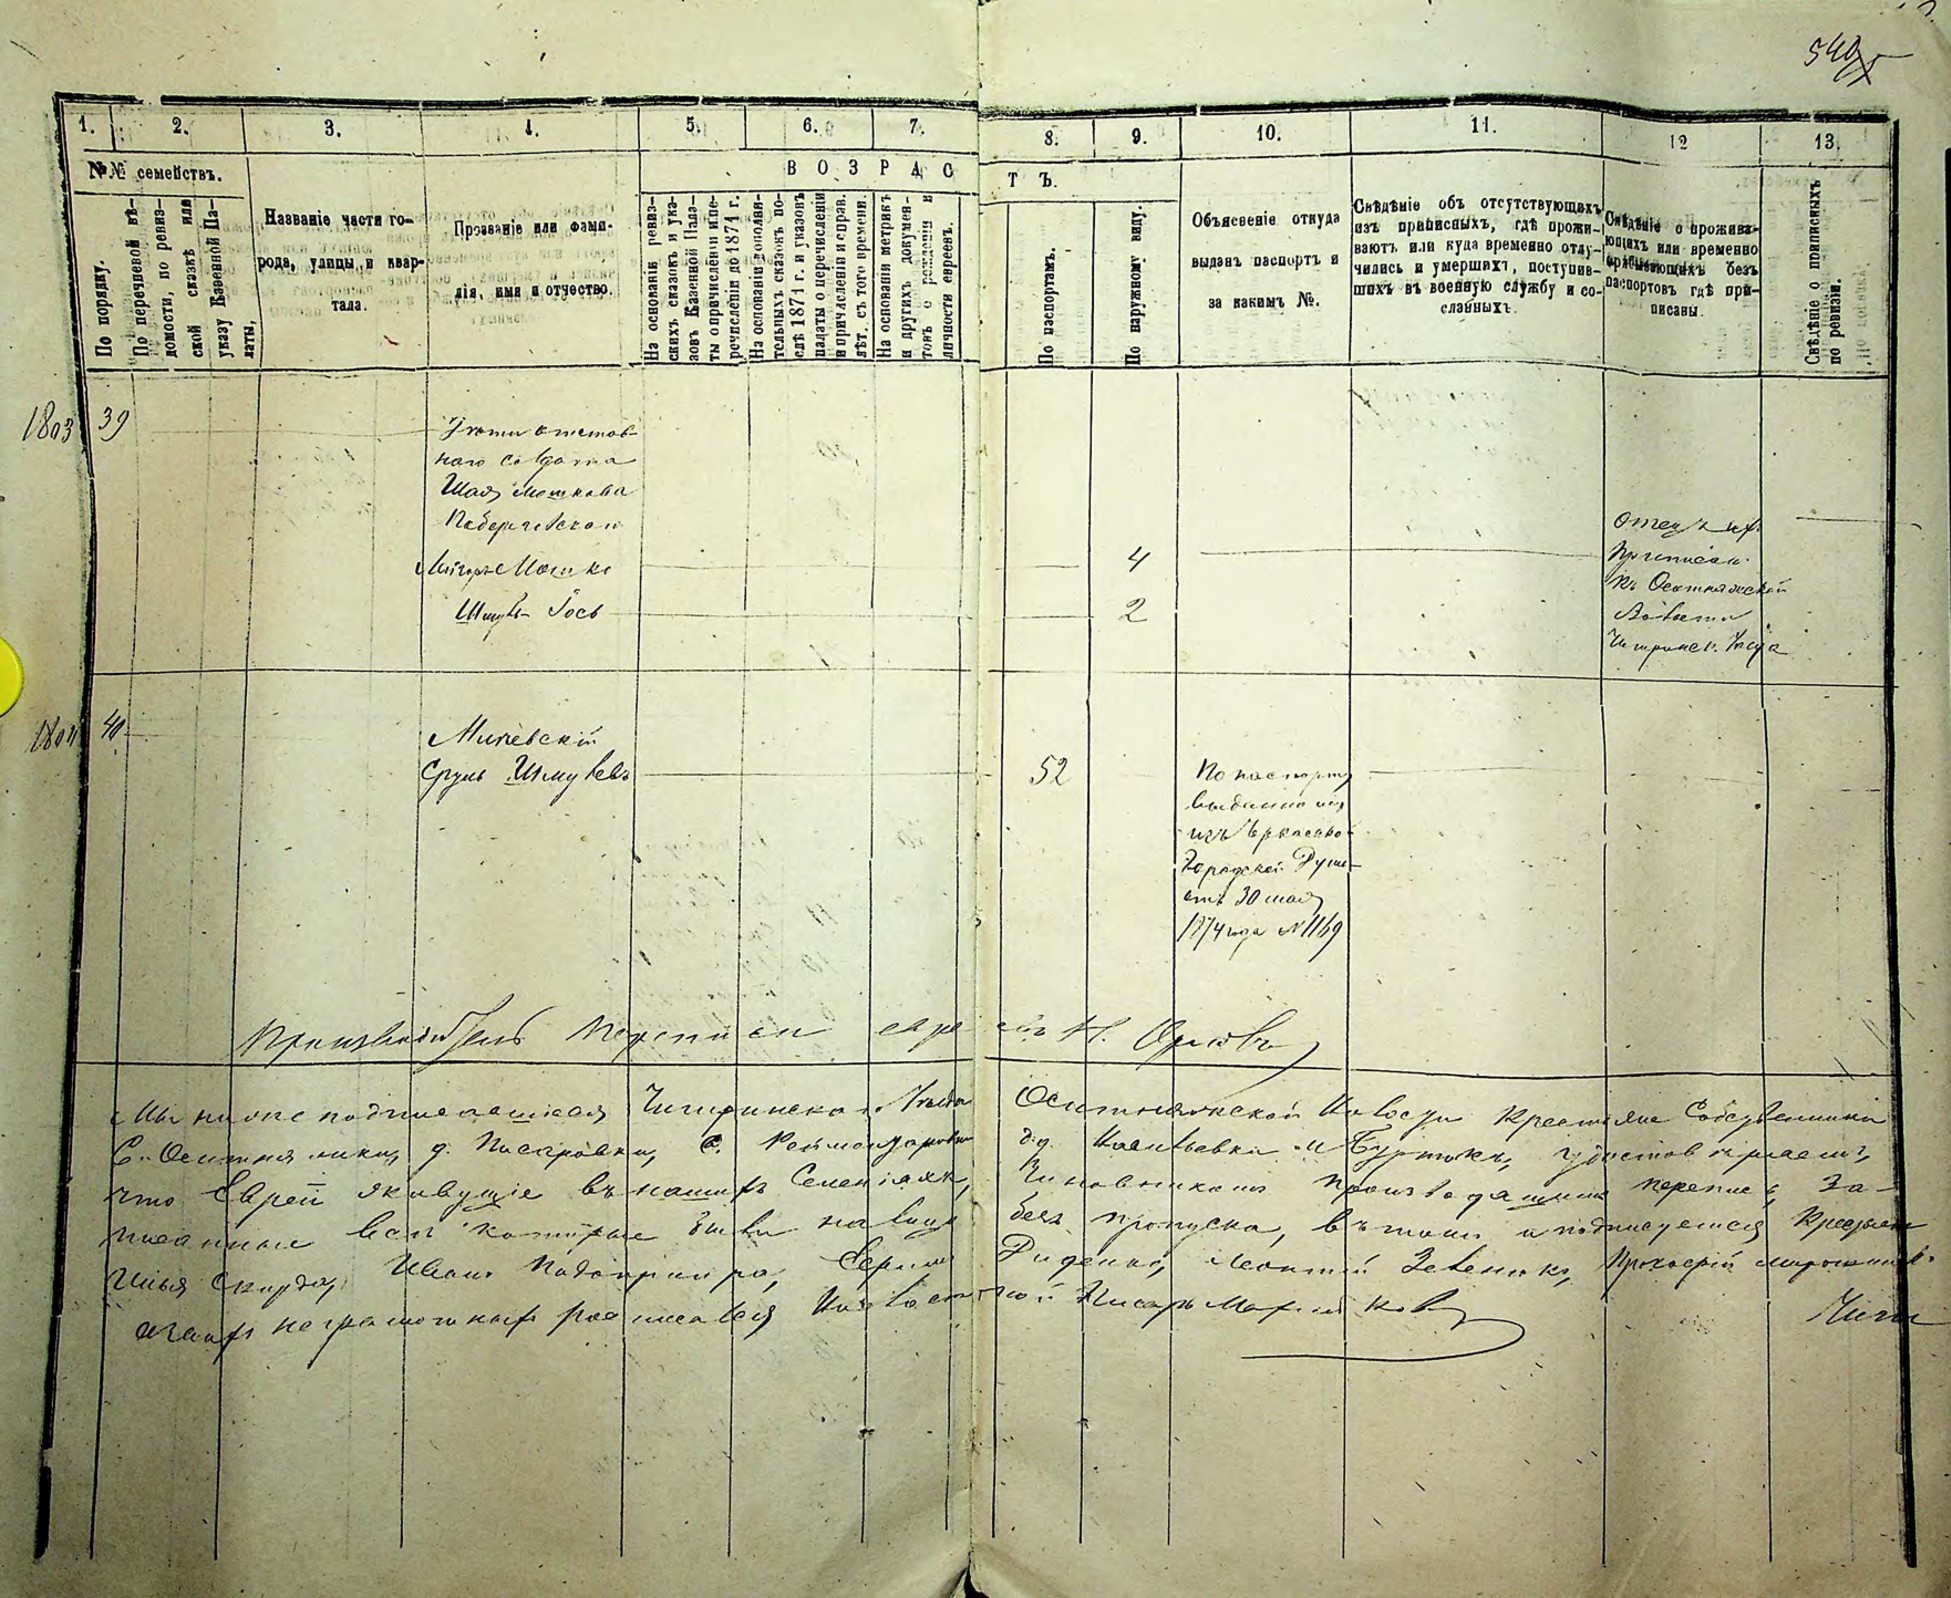 540
1. 2. 3. 4. 5. 6. 7. 8. 9. 10. 11. 12 13.
№№ семействъ.
ВОЗРАСТЪ.
По порядку.
По перечневой вѣ-
домости, по ревиз-
ской сказкѣ или
указу Казенной Па-
латы.
Названіе части го-
рода, улицы и квар-
тала.
Прозваніе или фами-
лія, имя и отчество.
На основаніи ревиз-
скихъ сказокъ и ука-
зовъ Казенной Пала-
ты о причисленіи и пе-
речисленіи до 1871 г.
На основаніи дополни-
тельныхъ сказокъ по-
слѣ 1871 г. и указовъ
палаты о перечисленіи
и причисленіи и справ.
лѣт. съ того времени.
На основаніи метрикъ
и другихъ докумен-
товъ о рожденіи и
личности евреевъ.
По паспортамъ.
По наружному виду.
Объясненіе откуда
выданъ паспортъ и
за какимъ №.
Свѣдѣніе объ отсутствующихъ
изъ приписныхъ, гдѣ прожи-
ваютъ или куда временно отлу-
чились и умершихъ, поступив-
шихъ въ военную службу и со-
сланныхъ.
Свѣдѣніе о прожива-
ющихъ или временно
пребывающихъ безъ
паспортовъ гдѣ при-
писаны.
Свѣдѣніе о приписныхъ
по ревизіи.
1803 39
отстав-
наго солдата
Шая Мошкова
Мошко 4
Шмуль Іось 2
Отецъ ихъ
приписан.
къ Оситняжской
Волости
Чигринск. Уѣзда
1804 40
Миліевскій
Сруль Шмулевъ 52
По паспорту
выданному
изъ Черкаской
Городской Думы
отъ 30 мая
1874 года №1169
Производитель переписи евреевъ Н. Орловъ
Мы нижеподписавшіеся Чигиринскаго Уѣзда Оситняжской Волости Крестьяне Собственники
С. Оситняжки, д. Писаровки, С. д.д. Василевки и Буртокъ, удостовѣряемъ,
что Евреи живущіе въ нашихъ Селеніяхъ, Чиновникомъ производящимъ перепись, за-
писанные всѣ которые были на лицо безъ пропуска, въ томъ и подписуемся Крестьяне
Илья Скирда, Иванъ Подопригора, Леонтій Прокофій
неграмотныхъ росписался Волостной Писарь